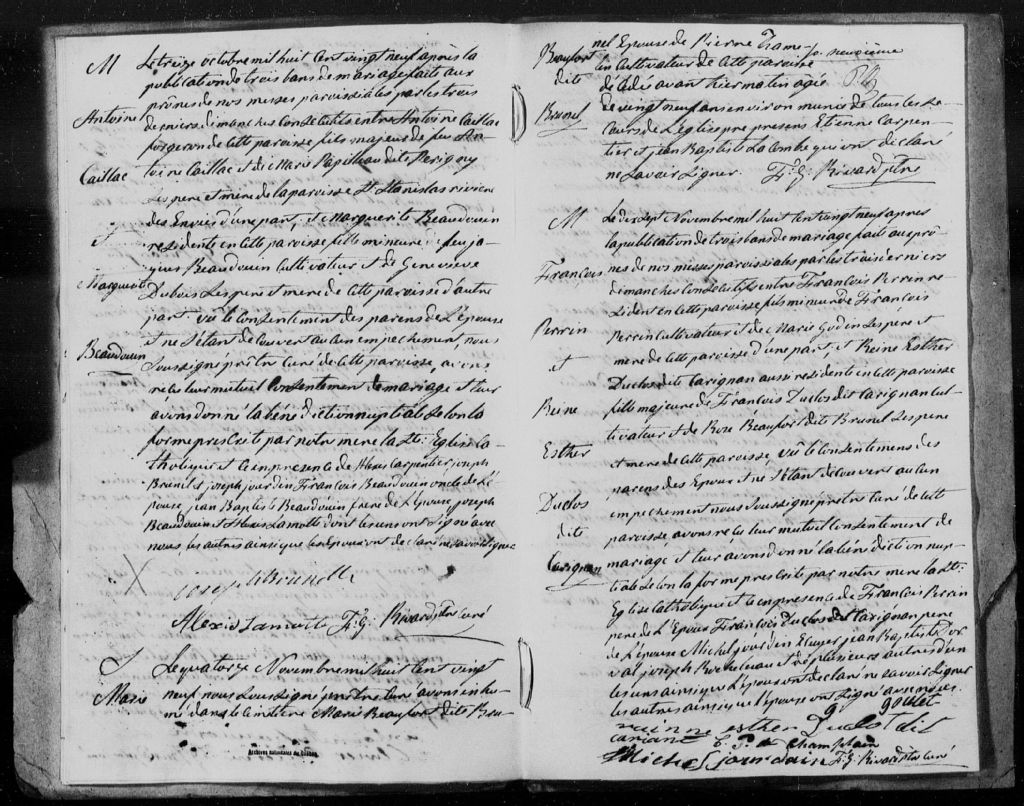 M
Antoine
Caillac
et
Marguerite
Beaudouin
Le treize octobre mil huit cent vingt neuf après la
publication de trois bans de mariage faite aux
prônes de nos messes paroissiales par les trois
derniers dimanches consecutifs entre Antoine Caillac
forgeron de cette paroisse fils majeur de feu An-
toine Caillac et de Marie Papilleau dite Perigny
ses pere et mere de la paroisse St Stanislas riviere
des Envies d'une part, et Marguerite Beaudouin
residente en cette paroisse fille mineure de feu ja-
ques Beaudouin cultivateur et de Genevieve
Dubois ses pere et mere de cette paroisse d'autre
part. vû le consentement des parens de l'épouse
et ne s'étant decouvert aucun empechement, nous
soussigné prêtre curé de cette paroisse avons
recu leur mutuel consentement de mariage et leur
avons donné la béné diction nuptiale selon la
forme prescrite par notre mere la Ste Eglise ca-
tholique et ce en presence de Alexis Carpentier joseph
Brunel et joseph jourdin François Beaudouin oncle de l'é-
pouse, jean Baptiste Beaudouin frere de l'épouse joseph
Beaudouin et Alexis Lamotte dont les uns ont signé avec
nous, les autres ainsi que les époux ont declaré ne savoir signer
josephe Brunelle
Alexis Lamotte F. G. Rivard ptre curé
S
Marie
Le quatorze Novembre mil huit cent vingt
neuf nous soussigné prêtre curé avons inhu-
mé dans le cimetiere Marie Beaufort dite Bru-
Archives nationales du Québec
Beaufort
dite
Brunel
nel Epouse de Pierre Tram-
blé cultivateur de cette paroisse
decédé avant hier matin agée
de vingt neuf ans environ munie de tous les se-
cours de l'Eglise pre presens Etienne Carpen-
tier et jean Baptiste La Combe qui ont declaré
ne savoir signer. F. G. Rivard ptre
M
François
Perrin
et
Reine
Esther
Duclos
dite
Carignan
Le dix sept Novembre mil huit cent vingt neuf apres
la publication de trois bans de mariage faite au prô-
nes de nos messes paroissiales par les trois derniers
dimanches consecutifs entre François Perrin re-
sident en cette paroisse fils mineur de François
Perrin cultivateur et de Marie Godin ses pere et
mere de cette paroisse d'une part et Reine Esther
Duclos dite Carignan aussi residente en cette paroisse
fille majeure de François Duclos dit Carignan cul-
tivateur et de Rose Beaufort dite Brunel ses pere
et mere de cette paroisse, vû le consentemens des
parens des Epoux et ne s'étant decouvert aucun
empechement nous soussigné prêtre curé de cette
paroisse, avons recu leur mutuel consentement de
mariage et leur avons donné la béné diction nup-
tiale selon la forme prescrite par notre mere la Ste
Eglise catholique et ce en presence de François Perrin
pere de l'Epoux François Duclos dit Carignan pere
de l'Epouse Michel jourdin jean Baptiste Dor-
val joseph Rocheleau et de plusieurs autres d'on
les uns ainsi que l'époux ont declaré ne savoir signer
les autres ainsi que l'épouse ont signé avec nous.
rainne esther Duclo dit
cariane
Champlain
Michel jourdain F. G. Rivard ptre curé